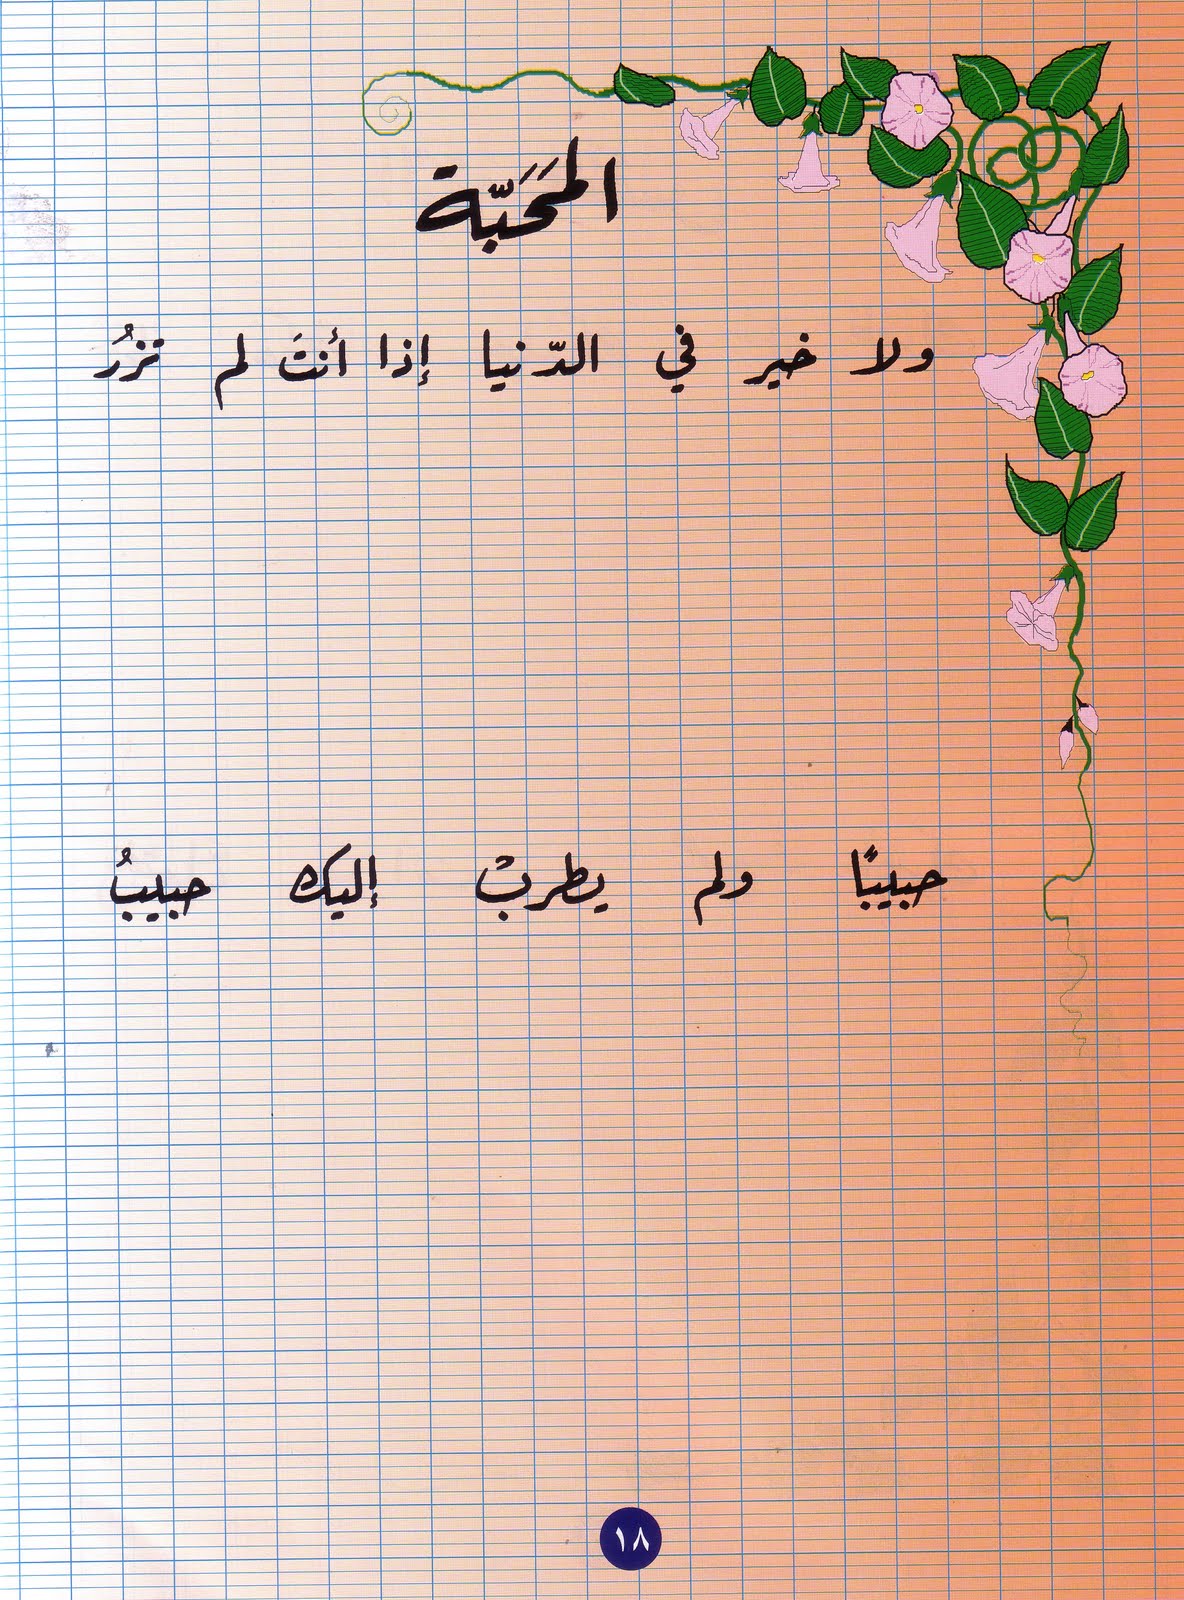 المَحَبّة
ولا خير في الدّنيا إذا أنتَ لم تزرُ
حبيبًا ولم يطربْ إليك حبيبُ
١٨